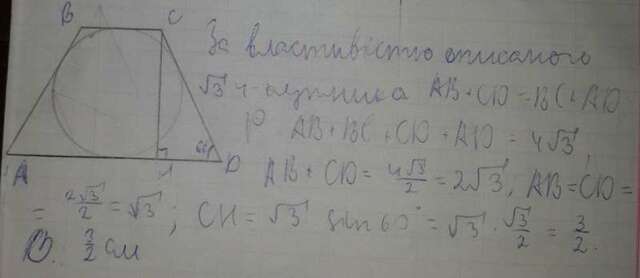 B C
За властивістю описаного
√3 4-кутника AB + CD = BC + AD
P AB + BC + CD + AD = 4√3,
60°
A H D
AB + CD = 4√3/2 = 2√3; AB = CD =
= 2√3/2 = √3; CH = √3 sin 60° = √3 · √3/2 = 3/2.
В. 3/2 см